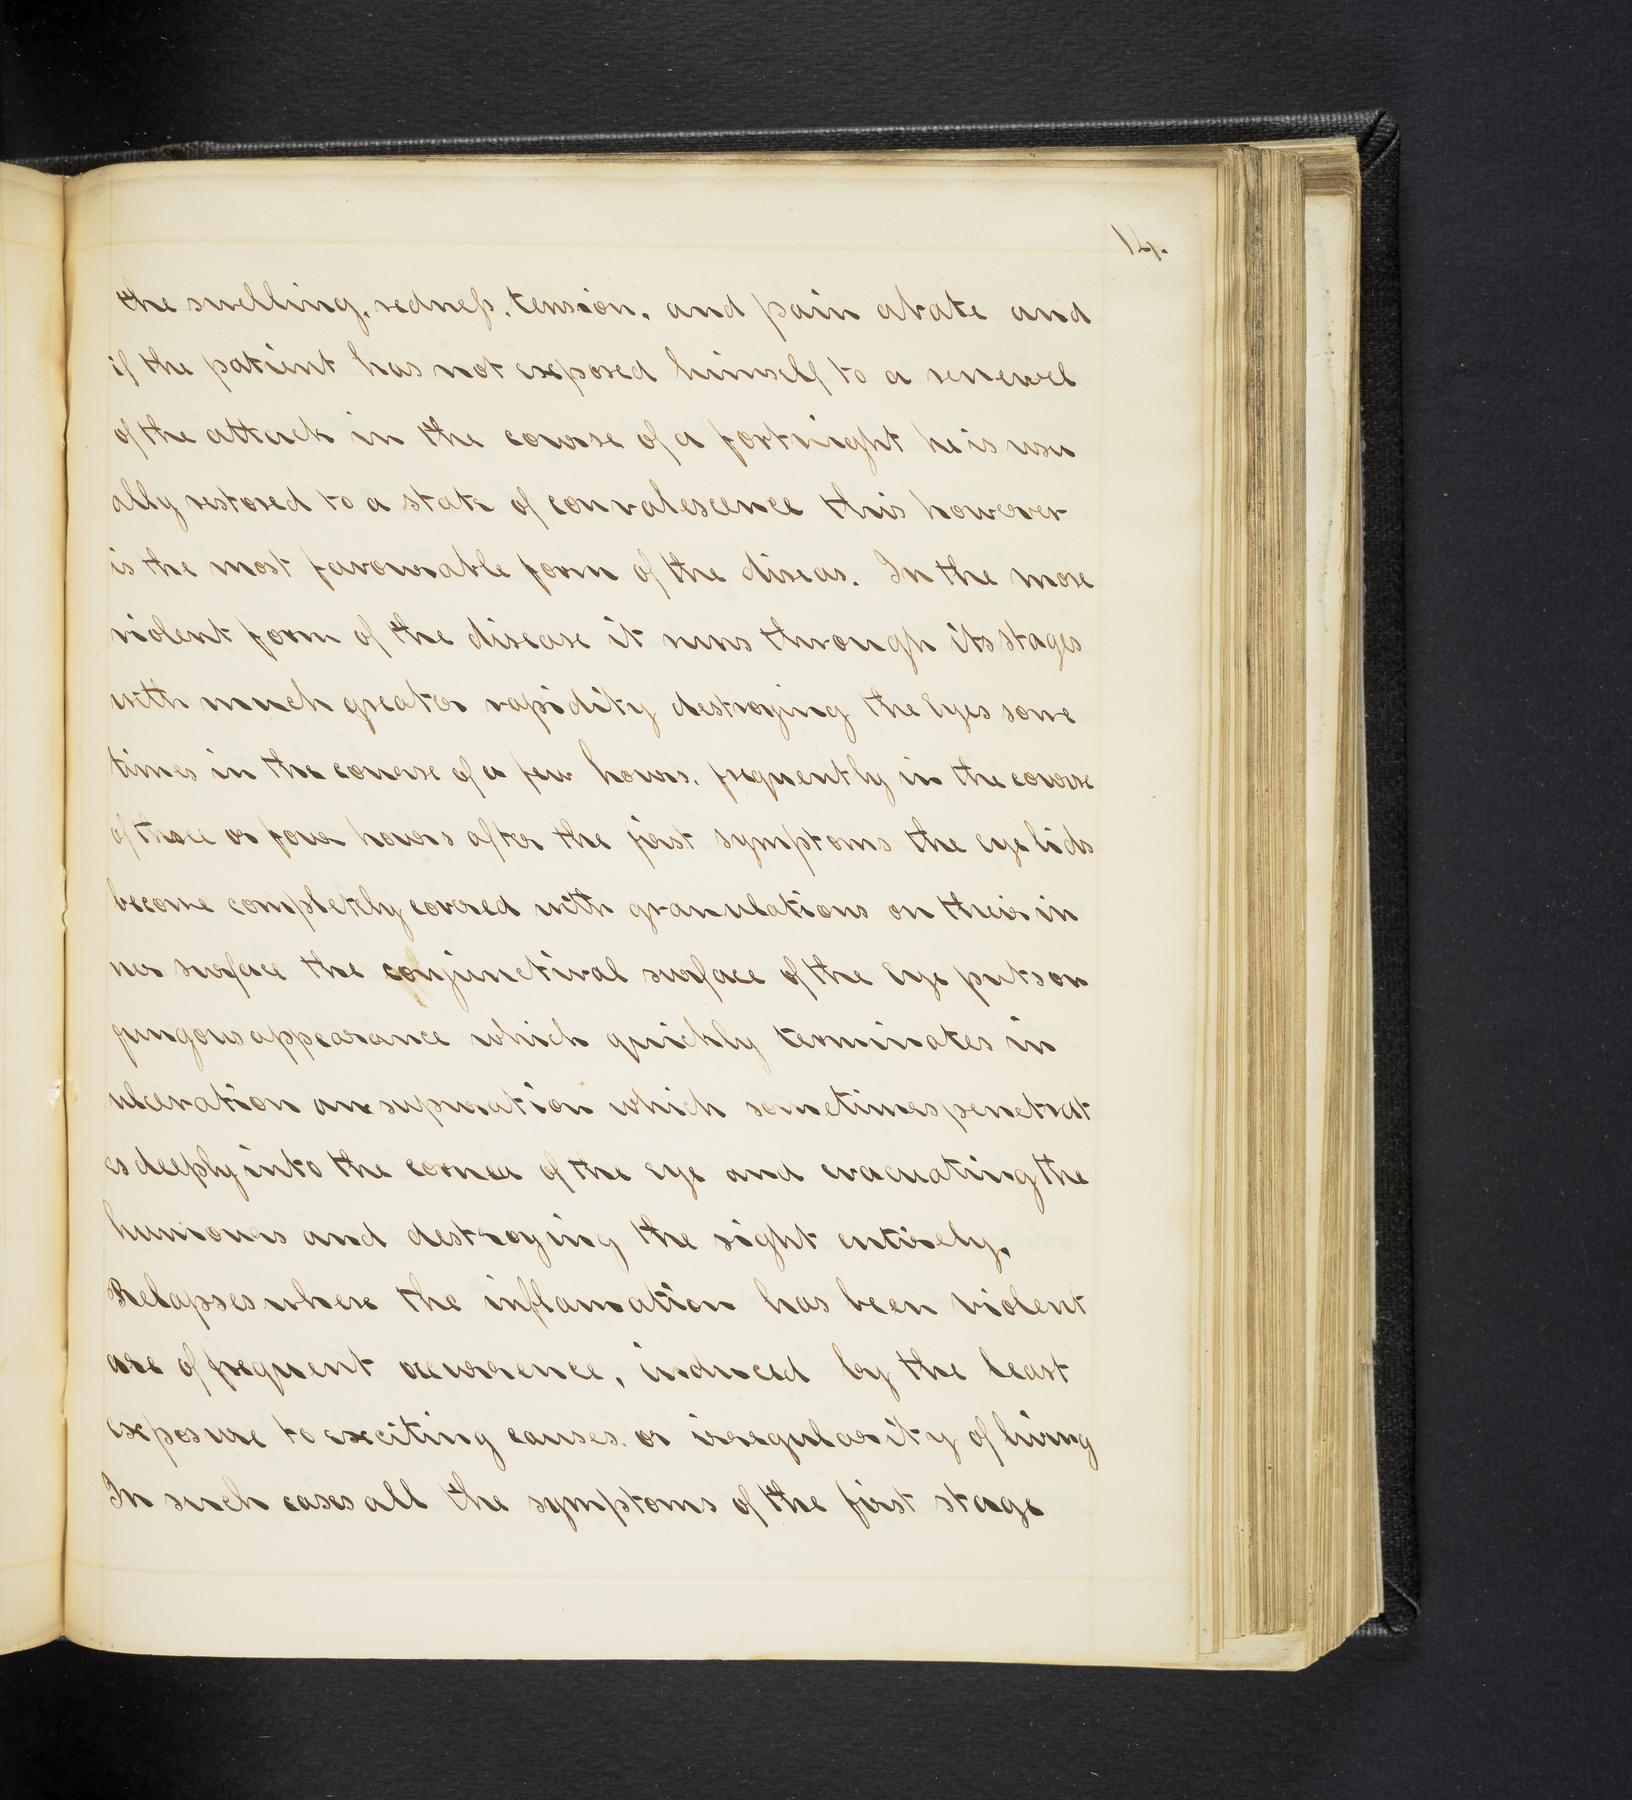 14.
the swelling, redness, tension, and pain abate and
if the patient has not exposed himself to a renewel
of the attack in the course of a fortnight he is usu
ally restored to a state of convalescence this however
is the most favourable form of the diseas. In the more
violent form of the disease it runs through its stages
with much greater rapidity destroying the Eyes some
times in the course of a few hours. frequently in the course
of three or four hours after the first symptoms the eyelids
become completely covered with granulations on their in
ner surface the conjunctival surface of the Eye puts on
fungous appearance which quickly terminates in
ulceration and supuration which sometimes penetrat
es deeply into the cornea of the eye and evacuating the
humours and destroying the sight entirely.
Relapses where the inflamation has been violent
are of frequent occurrence, induced by the least
exposure to exciting causes. or irregularity of living
In such cases all the symptoms of the first stage